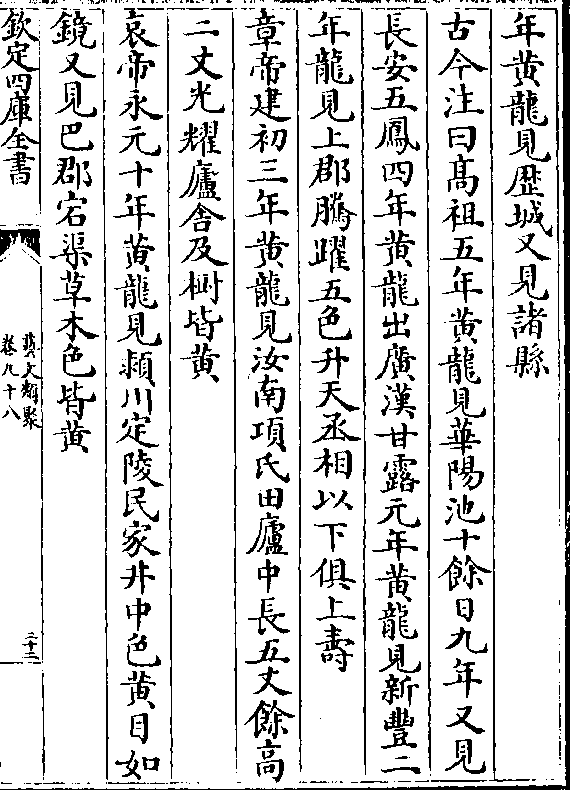 年黄龍見歴城又見諸縣
古今注曰髙祖五年黄龍見華陽池十餘日九年又見
長安五鳳四年黄龍出廣漢甘露元年黄龍見新豐二
年龍見上郡騰躍五色升天丞相以下俱上壽
章帝建初三年黄龍見汝南項氏田廬中長五丈餘高
二丈光耀廬舍及樹皆黄
哀帝永元十年黄龍見潁川定陵民家井中色黄目如
鏡又見巴郡宕渠草木色皆黄
欽定四庫全書
藝文類聚
卷九十八
二十三